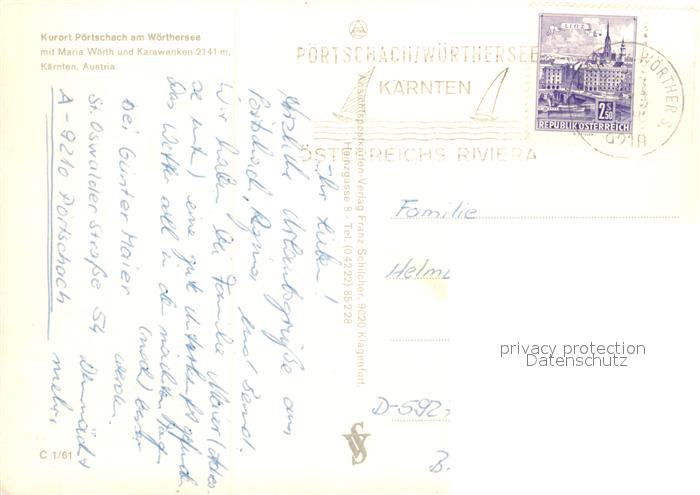 Kurort Pörtschach am Wörthersee
mit Maria Wörth und Karawanken 2141 m,
Kärnten, Austria
PÖRTSCHACH/WÖRTHERSEE
KÄRNTEN
ÖSTERREICHS RIVIERA
LINZ
2.50
REPUBLIK ÖSTERREICH
WÖRTHER S.
9210
Ihr Lieben!
Herzliche Urlaubsgrüße aus
Pörtschach,
Wir haben bei Familie Maier
eine gute Unterkunft gefunden.
Das Wetter soll in den nächsten Tagen
(noch) besser
werden.
Demnächst
mehr.
bei Günter Maier
St. Oswalder Straße 54
A-9210 Pörtschach
Ansichtspostkarten-Verlag Franz Schilcher, 9020 Klagenfurt,
Heinzgasse 8 - Tel. (04222) 85228
Familie
Helmu
D-592
B
privacy protection
Datenschutz
C 1/61